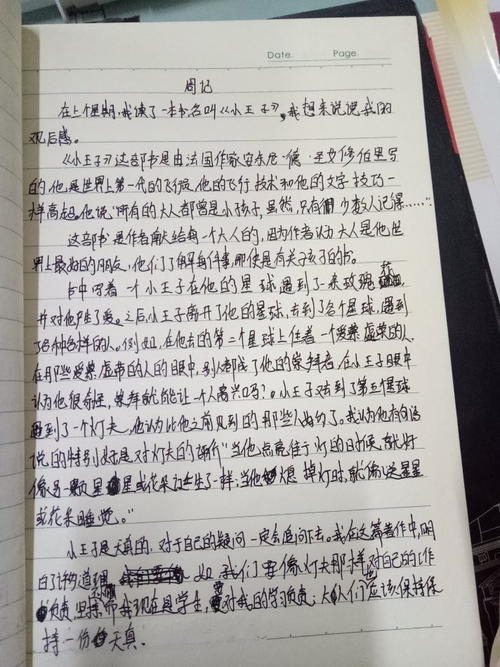 Date.    Page.
周记
在上个星期,我读了一本书名叫《小王子》,我想来说说我的
观后感。
《小王子》这部书是由法国作家安东尼·德·圣艾修伯里写
的,他是世界上第一代的飞行员,他的飞行技术和他的文字技巧一
样高超。他说"所有的大人都曾是小孩子,虽然,只有少数人记得……"
这部书是作者献给每一个大人的,因为作者认为大人是他世
界上最好的朋友,他们了解每件事,那怕是有关于孩子的书。
书中写着一个小王子在他的星球遇到了一朵玫瑰花
并对他产生了爱。之后小王子离开了他的星球,去到了各个星球,遇到
了各种各样的人。例如,在他去的第二个星球上住着一个爱慕虚荣的人,
在那些爱慕虚荣的人的眼中,别人都成了他的崇拜者,在小王子眼中
认为他很奇怪,崇拜就能让一个人高兴吗?小王子来到了第五个星球
遇到了一个灯夫,他认为比他之前见到的那些人好的了。我认为他有句话
说的特别好是对灯夫的评价"当他点亮住了灯的时候,就好
像另一颗星星或花朵诞生了一样;当他熄掉灯时,就像送星星
或花朵睡觉。"
小王子是天真的,对于自己的疑问一定会追问下去。我在这篇著作中,明
白了许多道理 如,我们要像灯夫那样对自己的工作
负责,坚持。我现在是学生,要对我的学习负责;大人们也应该保持保
持一份天真.